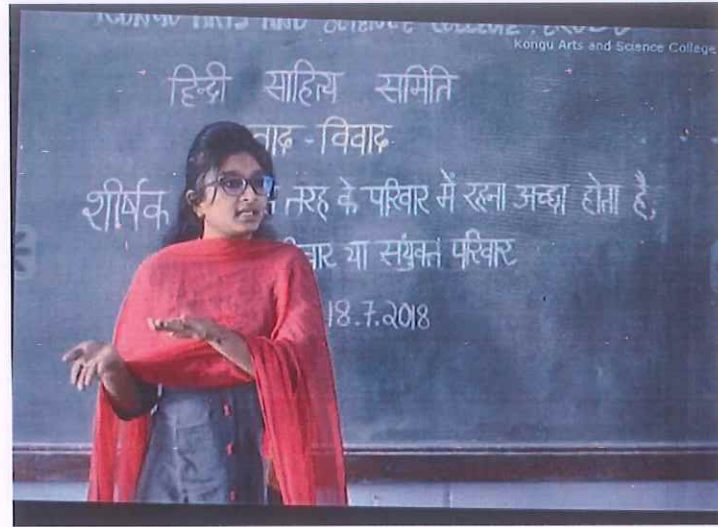 KONGU ARTS AND SCIENCE COLLEGE, ERODE
Kongu Arts and Science College
हिन्दी साहित्य समिति
वाद - विवाद
शीर्षक तरह के परिवार में रहना अच्छा होता है,
या संयुक्त परिवार
18.7.2018